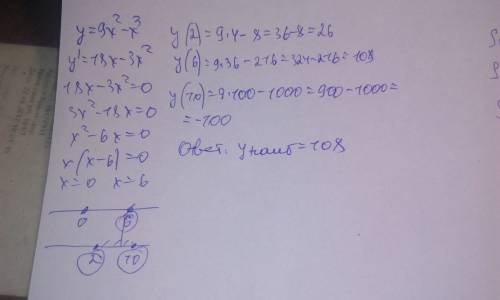 y=9x²-x³
y'=18x-3x²
18x-3x²=0
3x²-18x=0
x²-6x=0
x(x-6)=0
x=0 x=6
0 6
2 10
y(2)=9·4-8=36-8=26
y(6)=9·36-216=324-216=108
y(10)=9·100-1000=900-1000=
=-100
Ответ: yнаиб=108